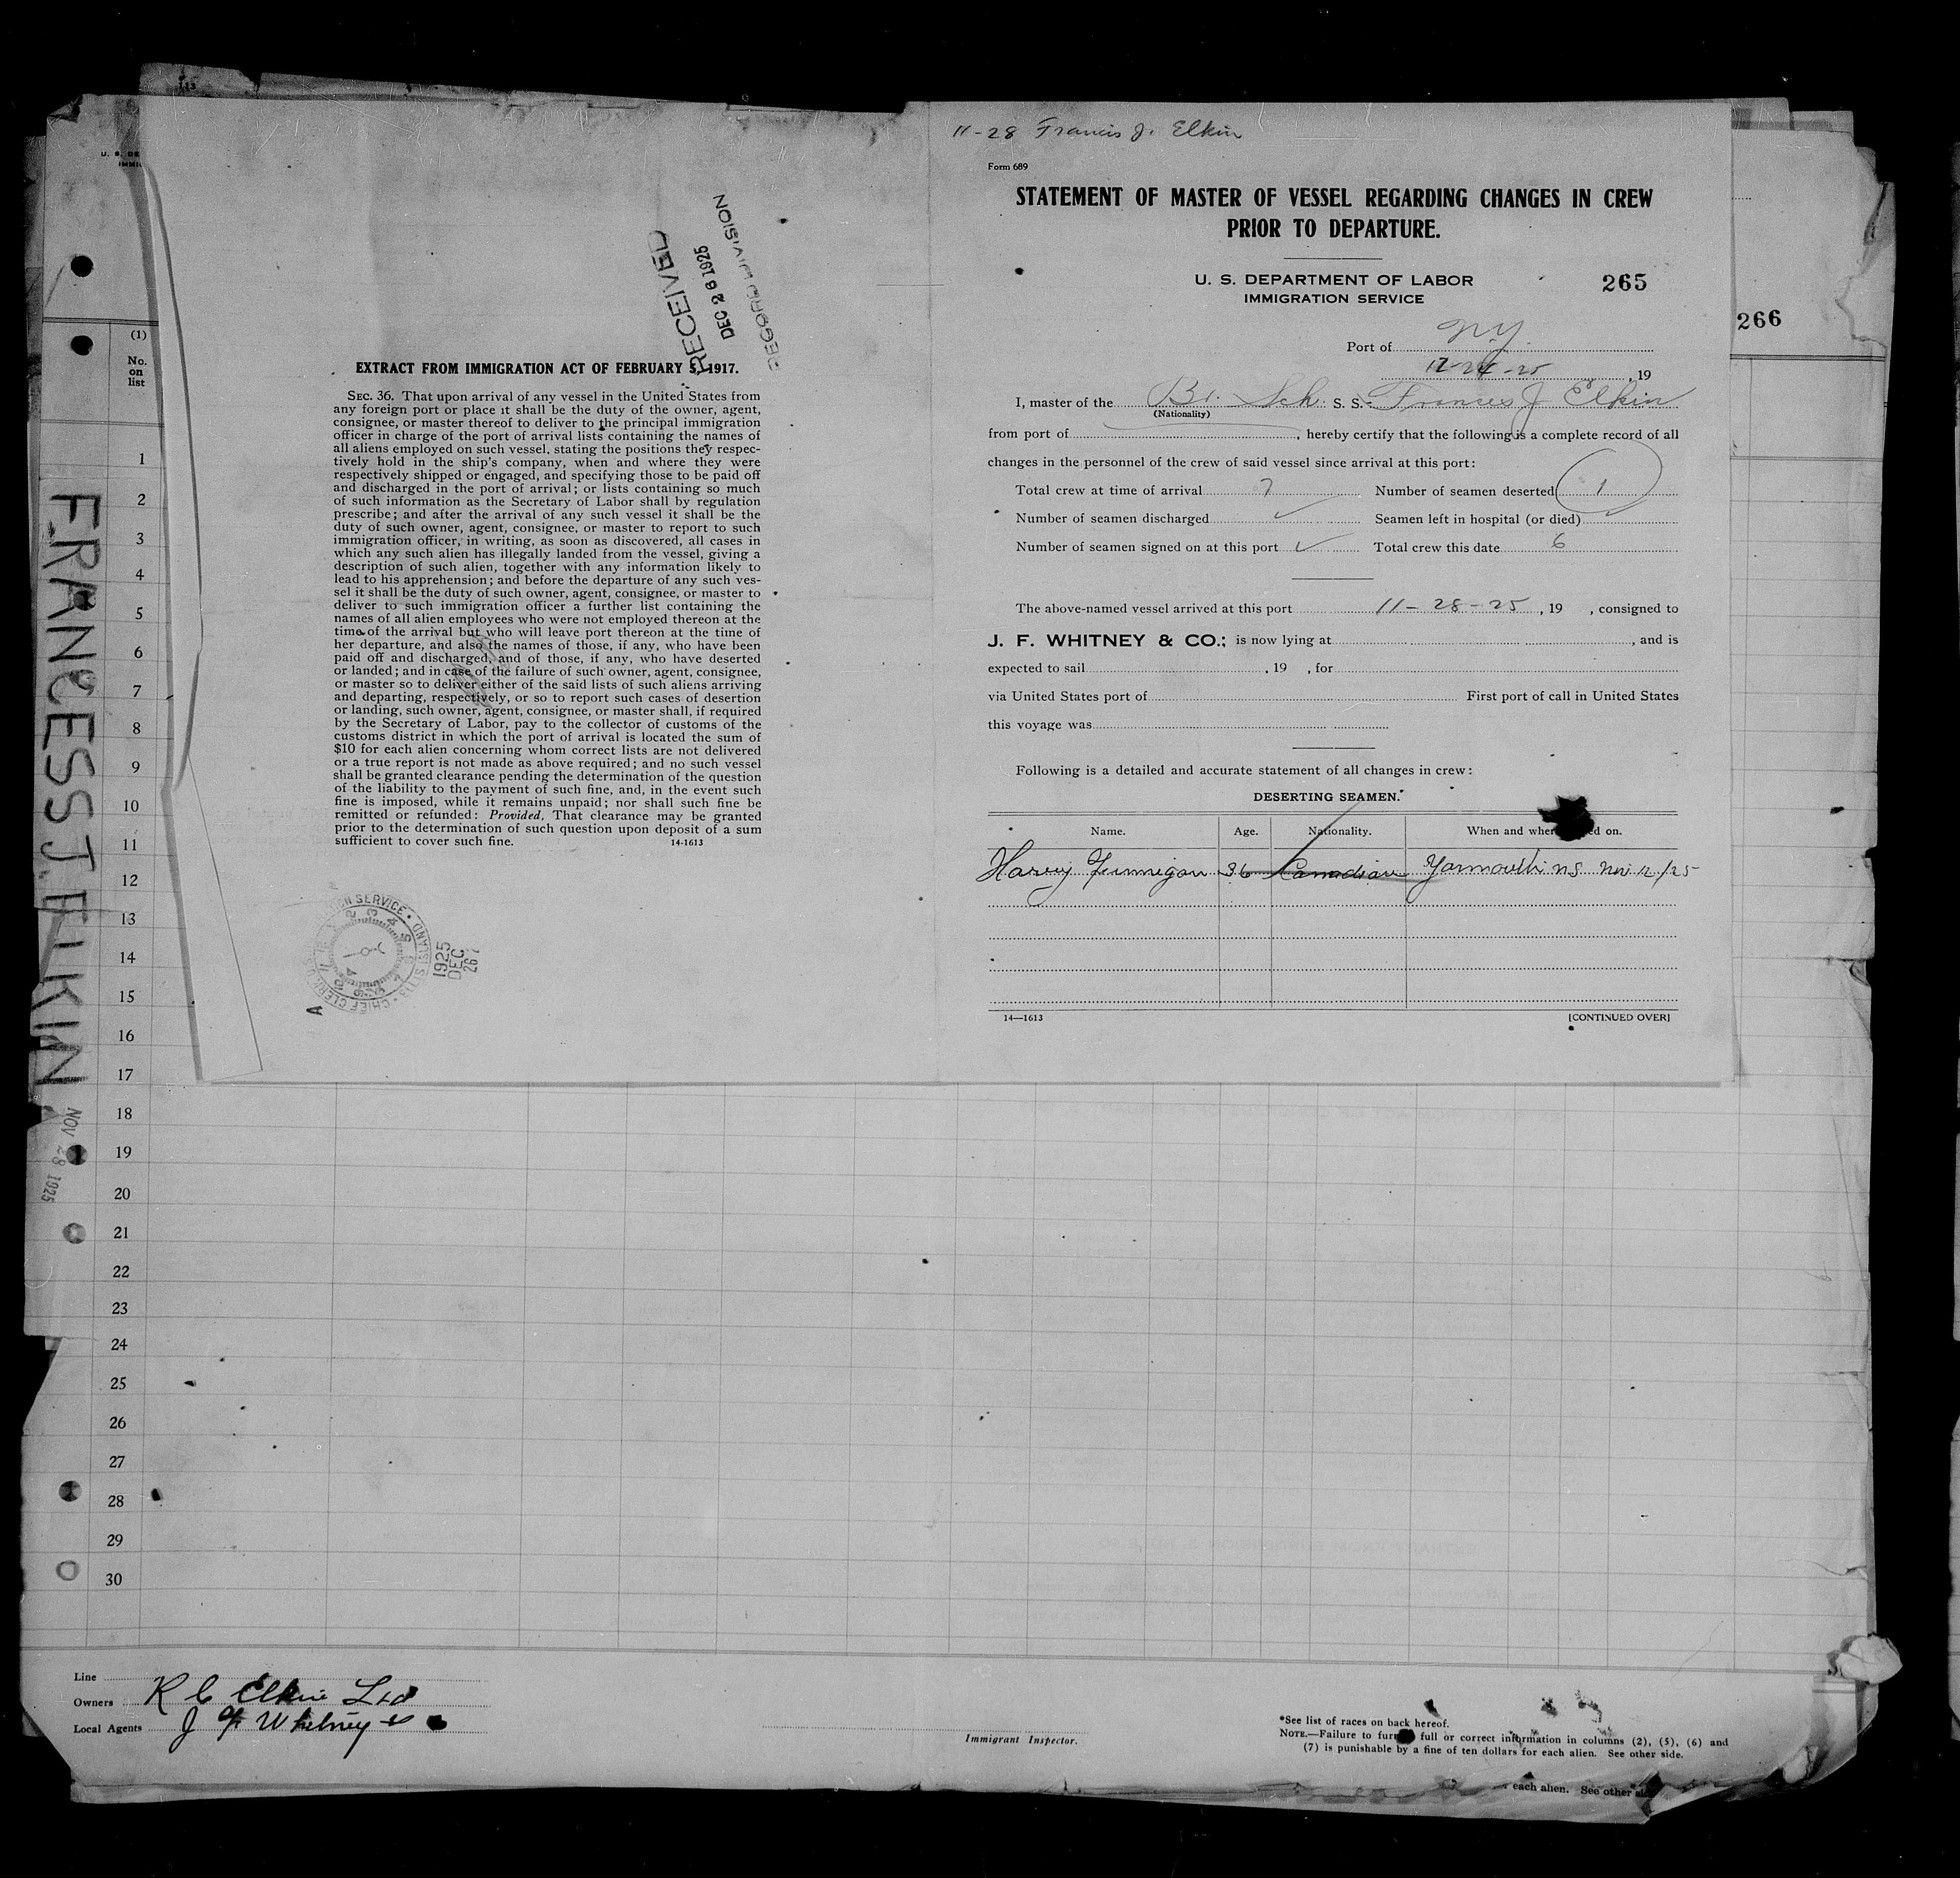 113
U. S. DE
IMMI
(1)
No.
on
list
1
2
3
4
5
6
7
8
9
10
11
12
13
14
15
16
17
18
19
20
21
22
23
24
25
26
27
28
29
30
FRANCESS J. ELKIN
NOV 28 1925
RECEIVED
DEC 26 1925
RECORD DIVISION
EXTRACT FROM IMMIGRATION ACT OF FEBRUARY 5, 1917.
SEC. 36. That upon arrival of any vessel in the United States from
any foreign port or place it shall be the duty of the owner, agent,
consignee, or master thereof to deliver to the principal immigration
officer in charge of the port of arrival lists containing the names of
all aliens employed on such vessel, stating the positions they respec-
tively hold in the ship's company, when and where they were
respectively shipped or engaged, and specifying those to be paid off
and discharged in the port of arrival; or lists containing so much
of such information as the Secretary of Labor shall by regulation
prescribe; and after the arrival of any such vessel it shall be the
duty of such owner, agent, consignee, or master to report to such
immigration officer, in writing, as soon as discovered, all cases in
which any such alien has illegally landed from the vessel, giving a
description of such alien, together with any information likely to
lead to his apprehension; and before the departure of any such ves-
sel it shall be the duty of such owner, agent, consignee, or master to
deliver to such immigration officer a further list containing the
names of all alien employees who were not employed thereon at the
time of the arrival but who will leave port thereon at the time of
her departure, and also the names of those, if any, who have been
paid off and discharged, and of those, if any, who have deserted
or landed; and in case of the failure of such owner, agent, consignee,
or master so to deliver either of the said lists of such aliens arriving
and departing, respectively, or so to report such cases of desertion
or landing, such owner, agent, consignee, or master shall, if required
by the Secretary of Labor, pay to the collector of customs of the
customs district in which the port of arrival is located the sum of
$10 for each alien concerning whom correct lists are not delivered
or a true report is not made as above required; and no such vessel
shall be granted clearance pending the determination of the question
of the liability to the payment of such fine, and, in the event such
fine is imposed, while it remains unpaid; nor shall such fine be
remitted or refunded: Provided, That clearance may be granted
prior to the determination of such question upon deposit of a sum
sufficient to cover such fine.
14-1613
SERVICE • ELLIS ISLAND • CHIEF CLERK
1925
DEC
26
A
11-28 Francis J. Elkin
Form 689
STATEMENT OF MASTER OF VESSEL REGARDING CHANGES IN CREW
PRIOR TO DEPARTURE.
U. S. DEPARTMENT OF LABOR
IMMIGRATION SERVICE
265
266
Port of N.Y.
12-24-25, 19
I, master of the Br. Sch. S. S. Frances J Elkin
(Nationality)
from port of, hereby certify that the following is a complete record of all
changes in the personnel of the crew of said vessel since arrival at this port:
Total crew at time of arrival 7 Number of seamen deserted 1
Number of seamen discharged Seamen left in hospital (or died)
Number of seamen signed on at this port Total crew this date 6
The above-named vessel arrived at this port 11-28-25, 19 , consigned to
J. F. WHITNEY & CO.; is now lying at, and is
expected to sail, 19 , for
via United States port of First port of call in United States
this voyage was
Following is a detailed and accurate statement of all changes in crew:
DESERTING SEAMEN.
Name. Age. Nationality. When and where ed on.
Harry Finnigan 36 Canadian Yarmouth N.S. Nov 12/25
14—1613 [CONTINUED OVER]
Line
Owners R C Elkin Ltd
Local Agents J F Whitney &
Immigrant Inspector.
*See list of races on back hereof.
NOTE.—Failure to furnish full or correct information in columns (2), (5), (6) and
(7) is punishable by a fine of ten dollars for each alien. See other side.
each alien. See other side